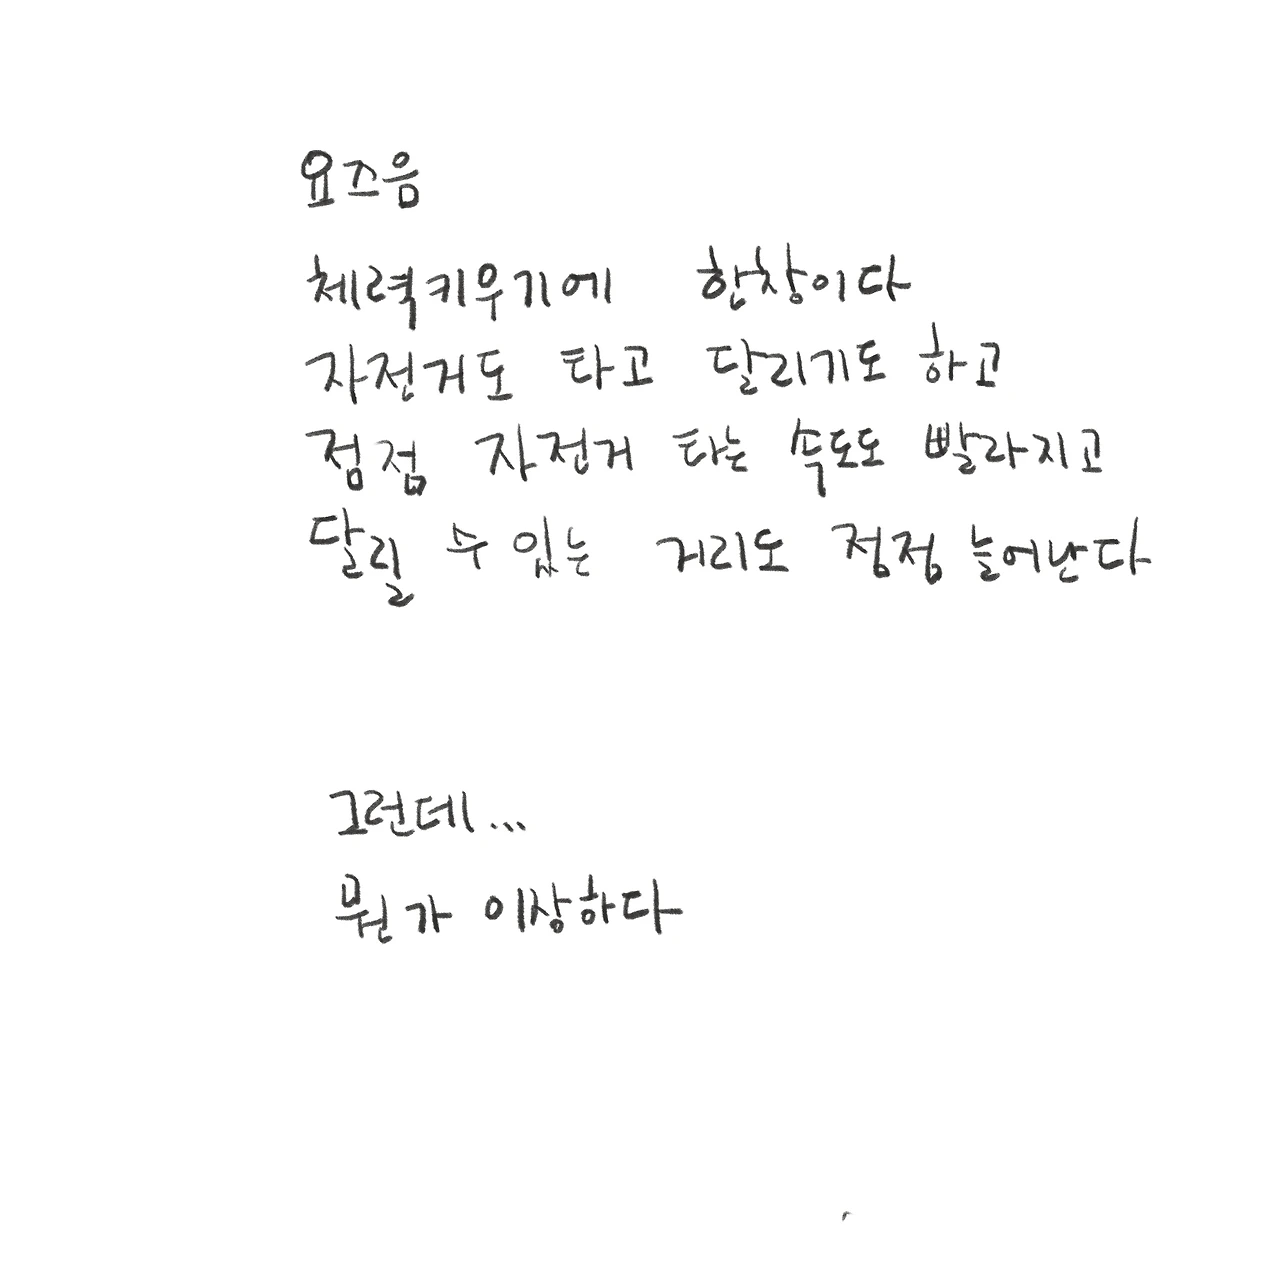 요즈음
체력키우기에 한창이다
자전거도 타고 달리기도 하고
점점 자전거 타는 속도도 빨라지고
달릴 수 있는 거리도 점점 늘어난다
그런데...
뭔가 이상하다